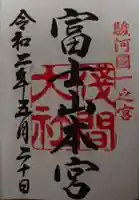 駿河國一之宮
富士山本宮
浅間大社
令和二年五月二十日